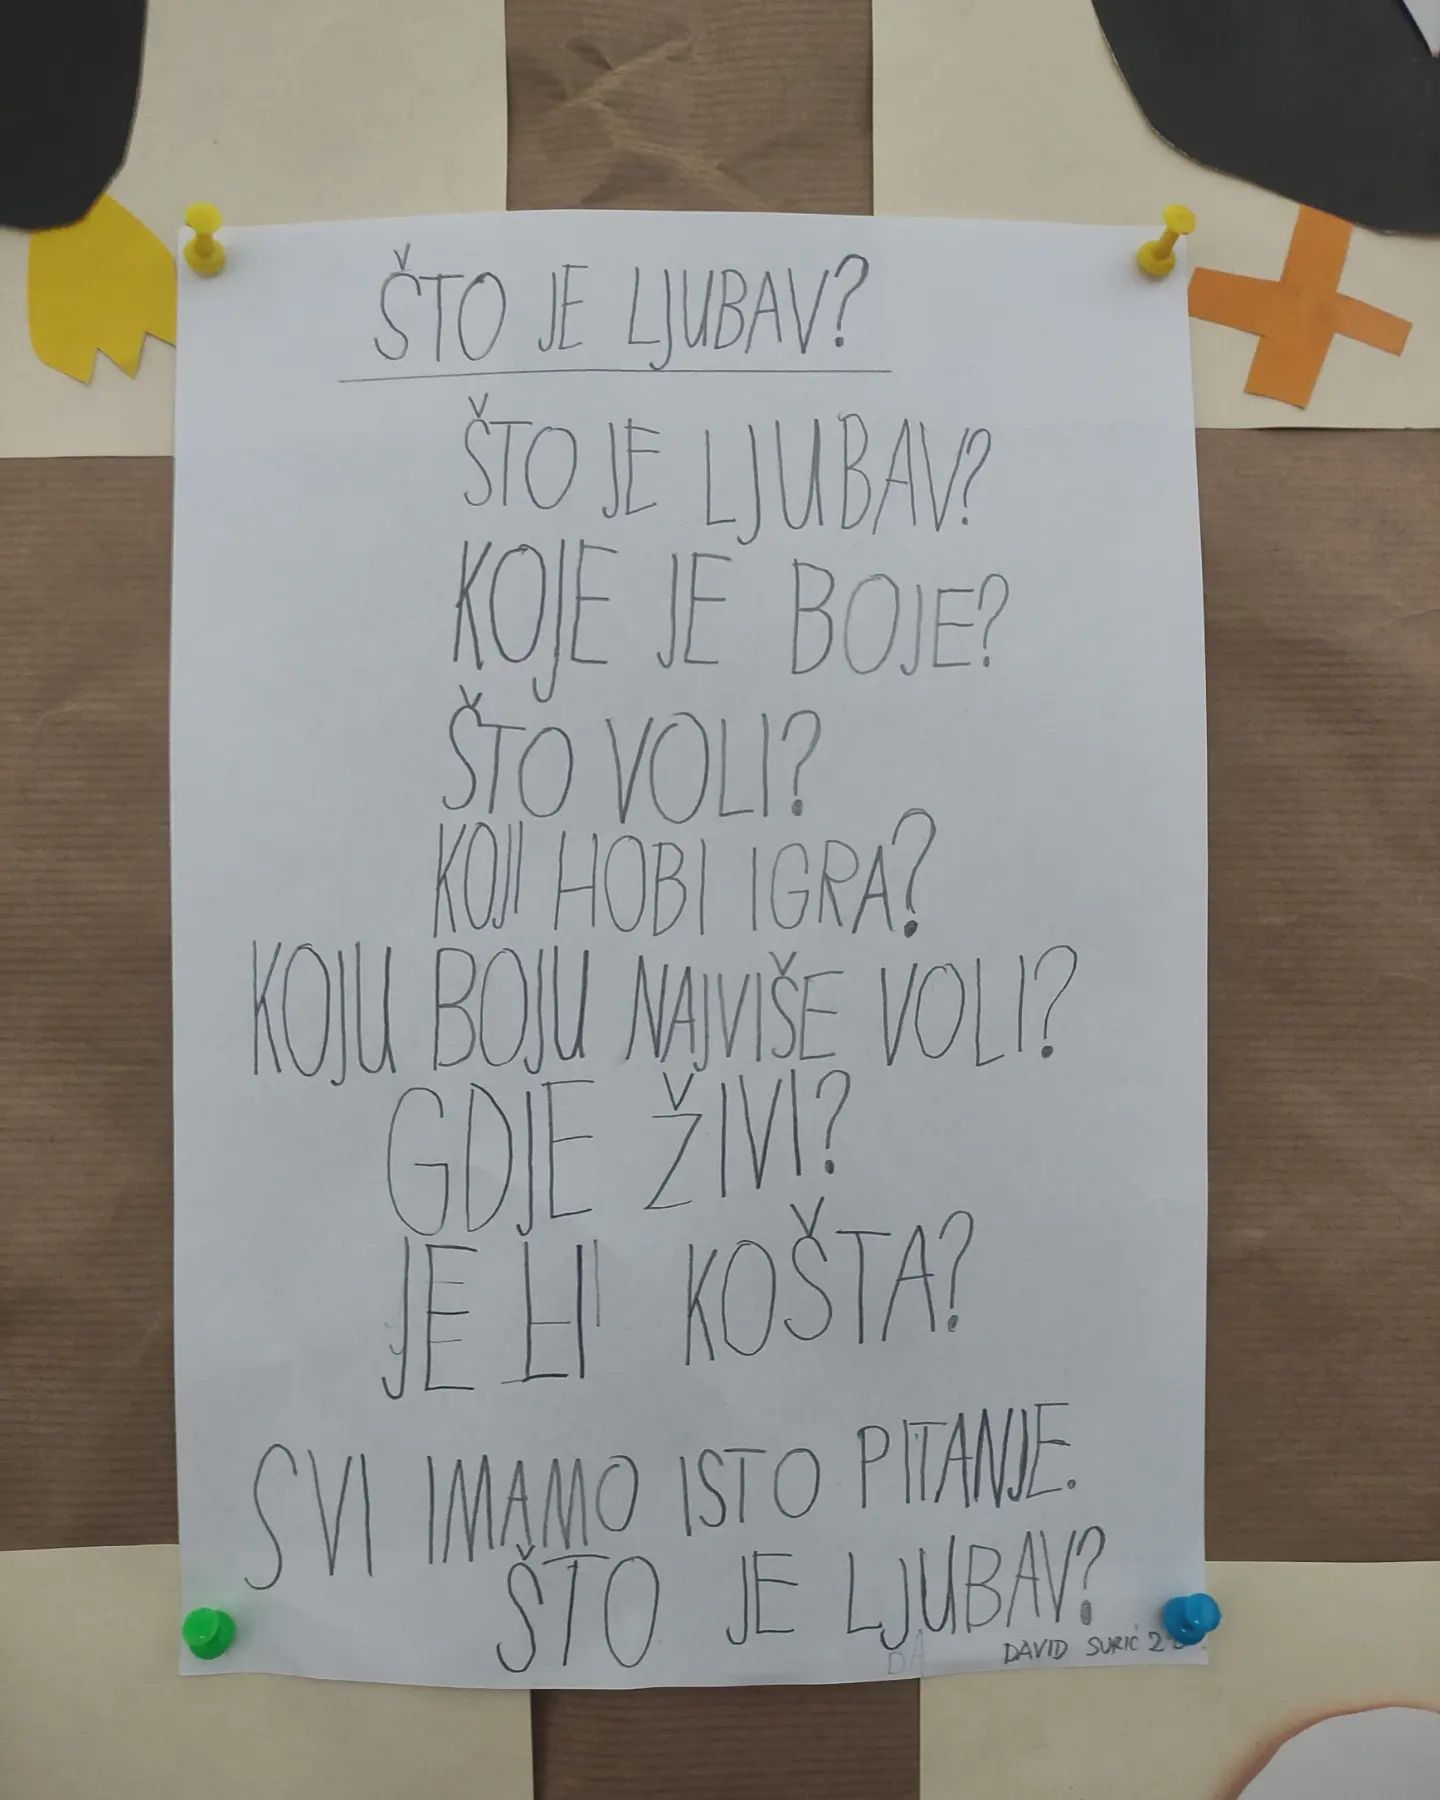 ŠTO JE LJUBAV?
ŠTO JE LJUBAV?
KOJE JE BOJE?
ŠTO VOLI?
KOJI HOBI IGRA?
KOJU BOJU NAJVIŠE VOLI?
GDJE ŽIVI?
JE LI KOŠTA?
SVI IMAMO ISTO PITANJE.
ŠTO JE LJUBAV?
DAVID SURIĆ 2